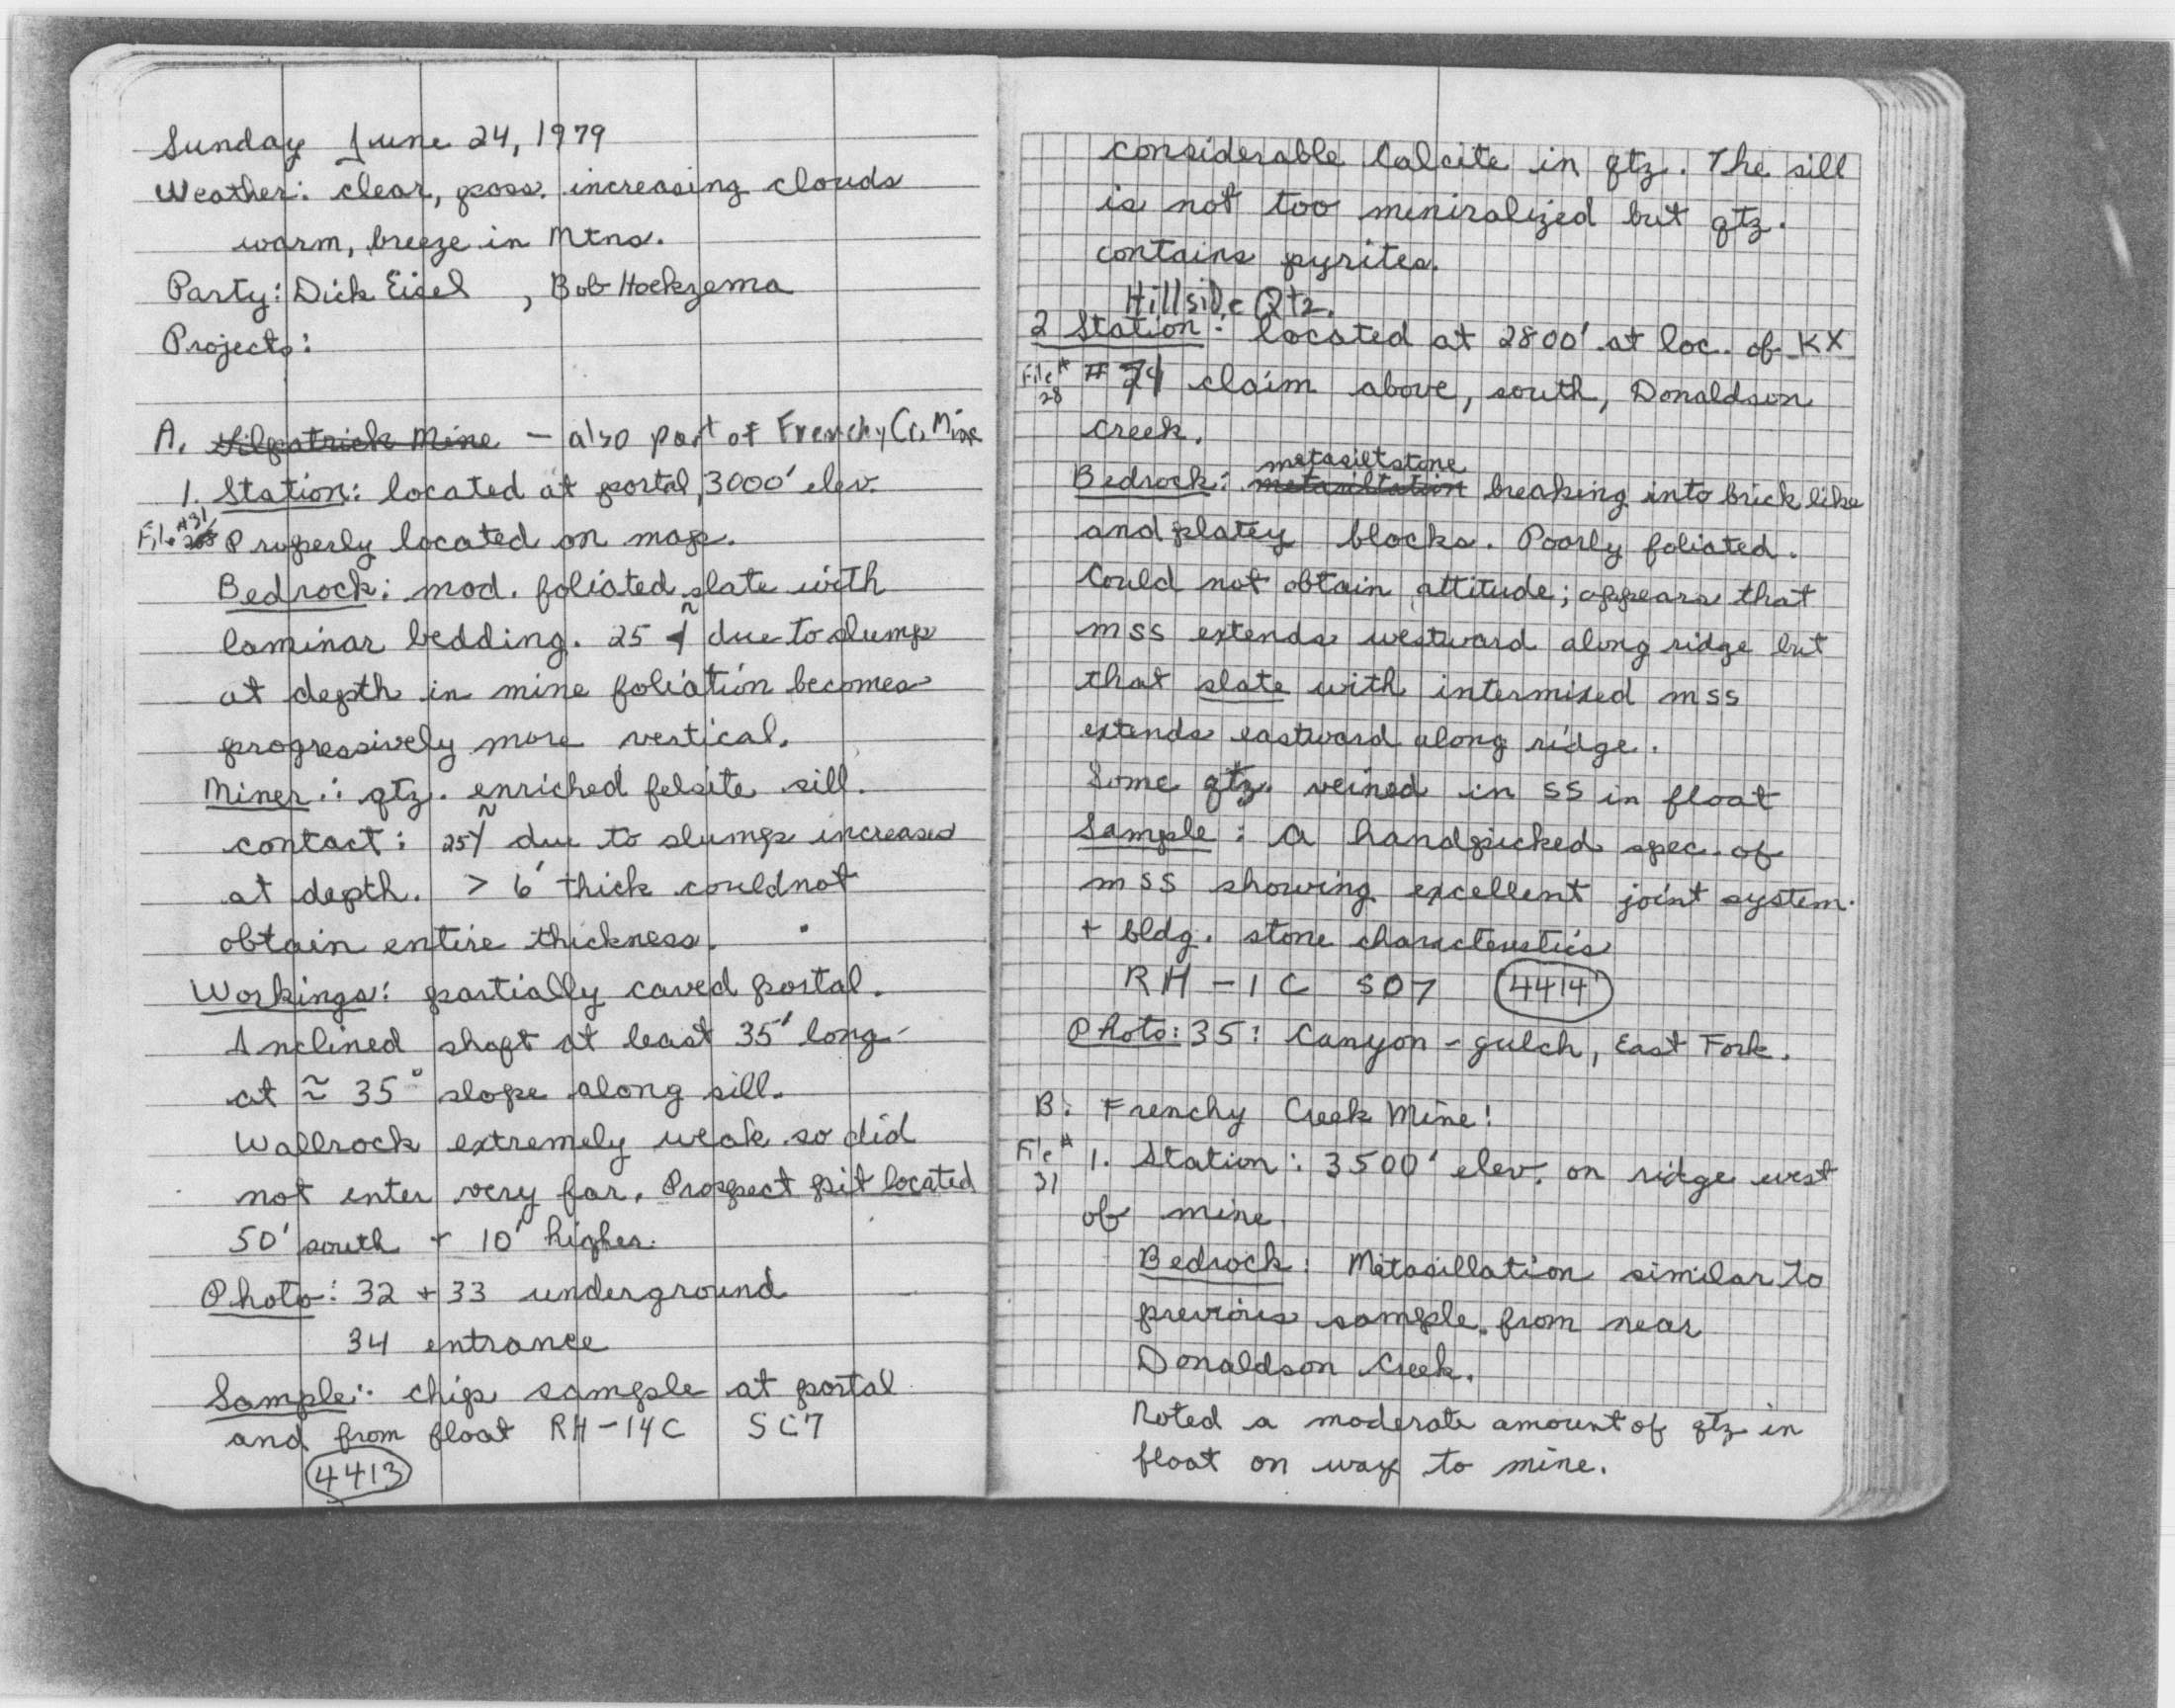 Sunday June 24, 1979
Weather: clear, poss. increasing clouds
warm, breeze in Mtns.
Party: Dick Eisel , Bob Hoekzema
Projects:
A. Kilpatrick Mine – also part of Frenchy Cr. Mine
1. Station: located at portal, 3000' elev.
File #31 Properly located on map.
Bedrock: mod. foliated slate with
laminar bedding. 25 due to slump
at depth in mine foliation becomes
progressively more vertical.
Miner.: qtz. enriched felsite sill.
contact: 25 due to slump increased
at depth. > 6' thick could not
obtain entire thickness.
Workings: partially caved portal.
Inclined shaft at least 35' long
at ≈ 35° slope along sill.
Wallrock extremely weak so did
not enter very far. Prospect pit located
50' south + 10' higher.
Photo: 32 + 33 underground
34 entrance
Sample: chip sample at portal
and from float RH-14C SC7
4413
considerable Calcite in qtz. The sill
is not too meniralized but qtz.
contains pyrites.
Hillside Qtz.
2 Station: located at 2800' at loc. of KX
File # 28 # claim above, south, Donaldson
creek.
metasiltstone
Bedrock: metasiltation breaking into brick like
and platey blocks. Poorly foliated.
Could not obtain attitude; appears that
mss extends westward along ridge but
that slate with intermixed mss
extends eastward along ridge.
Some qtz. veined in ss in float
Sample: a handpicked spec. of
mss showing excellent joint system
+ bldg. stone characteristics
RH-1C SO7 4414
Photo: 35: Canyon - gulch, East Fork.
B. Frenchy Creek Mine:
File # 31 1. Station: 3500' elev. on ridge west
of mine
Bedrock: Metasillation similar to
previous sample from near
Donaldson Creek.
Noted a moderate amount of qtz in
float on way to mine.